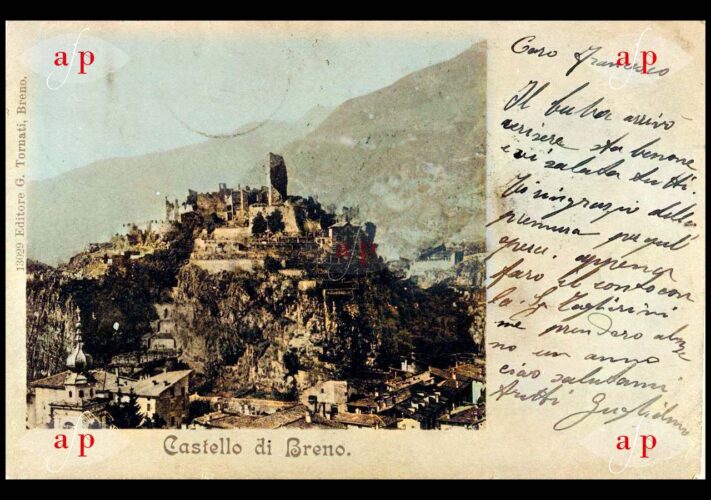 afp
afp
13029 Editore G. Tornati, Breno.
Caro Francesco
Il baba arrivò
ieri sera sta benone
e vi saluta tutti.
Vi ringrazio della
premura per quel
appena
farò il conto con
la S.
me prendero alme
no un anno
ciao salutami
tutti Guglielmo
afp
Castello di Breno.
afp
afp